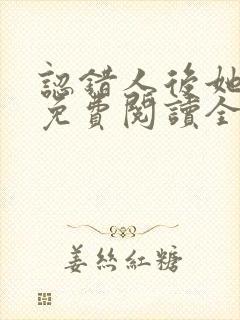 認錯人後她
免費閱讀全
姜絲紅糖